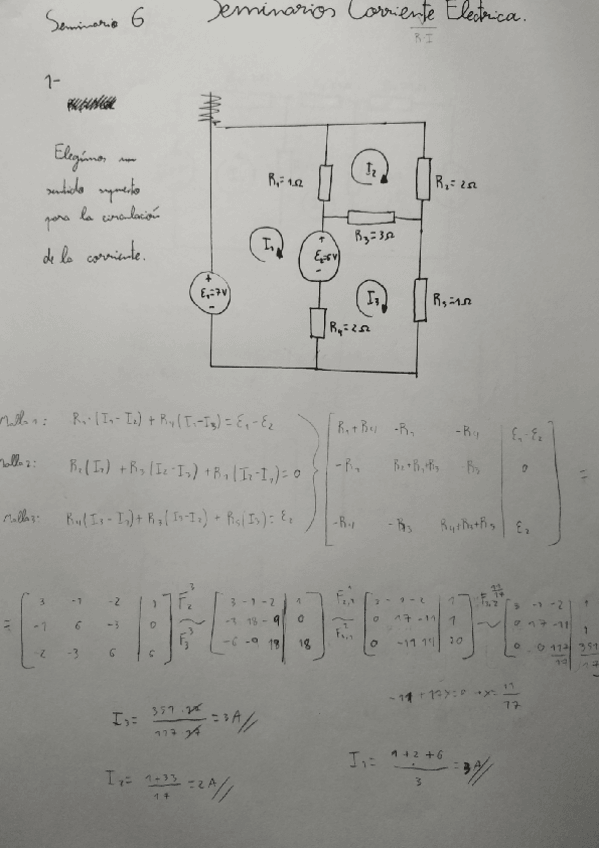 Seminario 6
Seminarios Corriente Electrica.
R·I
1-
Elegimos un
sentido
para la circulación
de la corriente.
R₁=1Ω
I₂
R₂=2Ω
R₃=3Ω
I₁
ε₂=6V
I₃
ε₁=7V
R₅=1Ω
R₄=2Ω
Malla 1: R₁·(I₁-I₂) + R₄(I₁-I₃) = ε₁-ε₂
Malla 2: R₂(I₂) + R₃(I₂-I₃) + R₁(I₂-I₁) = 0
Malla 3: R₄(I₃-I₁) + R₃(I₃-I₂) + R₅(I₃) = ε₂
R₁+R₄ -R₁ -R₄ ε₁-ε₂
-R₁ R₂+R₁+R₃ -R₃ 0
-R₄ -R₃ R₄+R₃+R₅ ε₂
=
= 3 -1 -2 1
-1 6 -3 0
-2 -3 6 6
3 -1 -2 1
-3 18 -9 0
-6 -9 18 18
3 -1 -2 1
0 17 -11 1
0 -11 14 20
3 -1 -2 1
0 17 -11 1
0 0 117/17 351/17
-11 + 17x=0 x= 11/17
I₃= 351·17/117·17 = 3A//
I₁= 1+2+6/3 = 3A//
I₂= 1+33/17 = 2A//